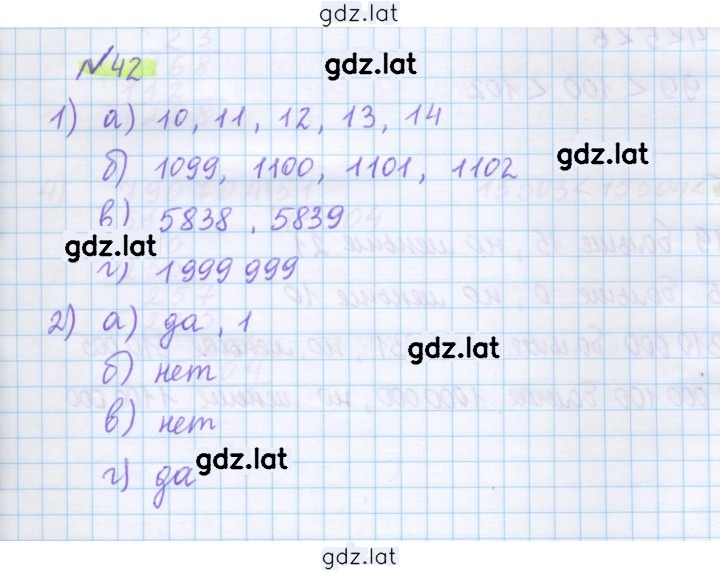 gdz.lat
№42
gdz.lat
1) а) 10, 11, 12, 13, 14
б) 1099, 1100, 1101, 1102
gdz.lat
в) 5838, 5839
gdz.lat
г) 1999 999
2) а) да, 1
gdz.lat
б) нет
в) нет
gdz.lat
г) да
gdz.lat